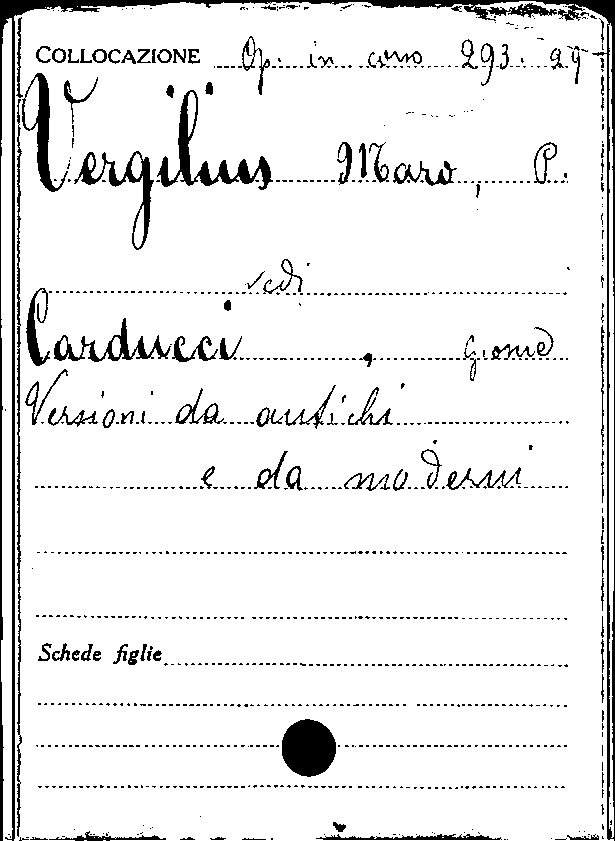 COLLOCAZIONE Op. in corso 293. 29
Vergilius Maro, P.
vedi
Carducci, Giosuè
Versioni da antichi
e da moderni
Schede figlie